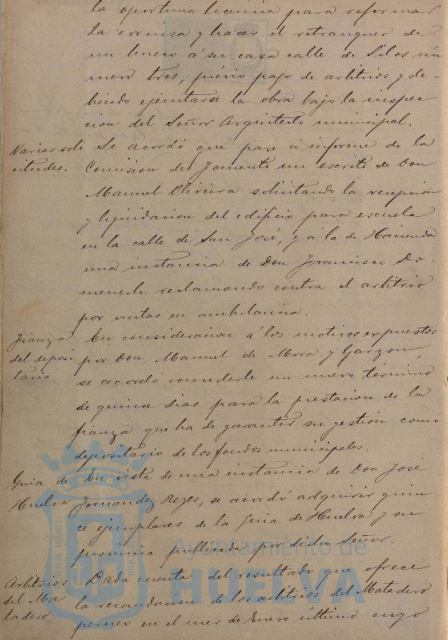 la oportuna licencia para reformar
la cornisa y hacer el retranqueo de
un hueco á su casa calle de Silos nú
mero tres, prévio pago de arbitrios y de
biendo ejecutarse la obra bajo la inspec
cion del Señor Arquitecto municipal.
Varias soli
citudes.
Se acordó que pase á informe de la
Comision de Fomento un escrito de Don
Manuel Oliveira solicitando la recepcion
y liquidacion del edificio para escuela
en la calle de San José, y á la de Hacienda
una instancia de Don Francisco Do-
menech reclamando contra el arbitrio
por ventas en ambulancia.
Fianza
del deposi
tario
En consideracion á los motivos expuestos
por Don Manuel de Mora y Garzon,
se acordó concederle un nuevo término
de quince dias para la prestacion de la
fianza que ha de garantir su gestion como
depositario de los fondos municipales.
Guia de
Huelva
En vista de una instancia de Don José
Fernandez Reyes, se acordó adquirir quin
ce ejemplares de la Guia de Huelva y su
provincia publicada por dicho Señor.
Arbitrios
del Ma
tadero
Dada cuenta del resultado que ofrece
la recaudacion de los arbitrios del Matadero
en el mes de Enero último cuyo
Ayuntamiento de
HUELVA